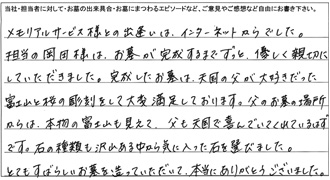 当社・担当者に対して・お墓の出来具合・お墓にまつわるエピソードなど、ご意見やご感想など自由にお書き下さい。
メモリアルサービス様との出逢いは、インターネットからでした。
担当の岡田様は、お墓が完成するまでずっと、優しく親切に
していただきました。完成したお墓は、天国の父が大好きだった
富士山と桜の彫刻をして大変満足しております。父のお墓の場所
からは、本物の富士山も見えて、父も天国で喜んでいてくれているはず
です。石の種類も沢山ある中から気に入った石を選びました。
とてもすばらしいお墓を造っていただいて、本当にありがとうございました。